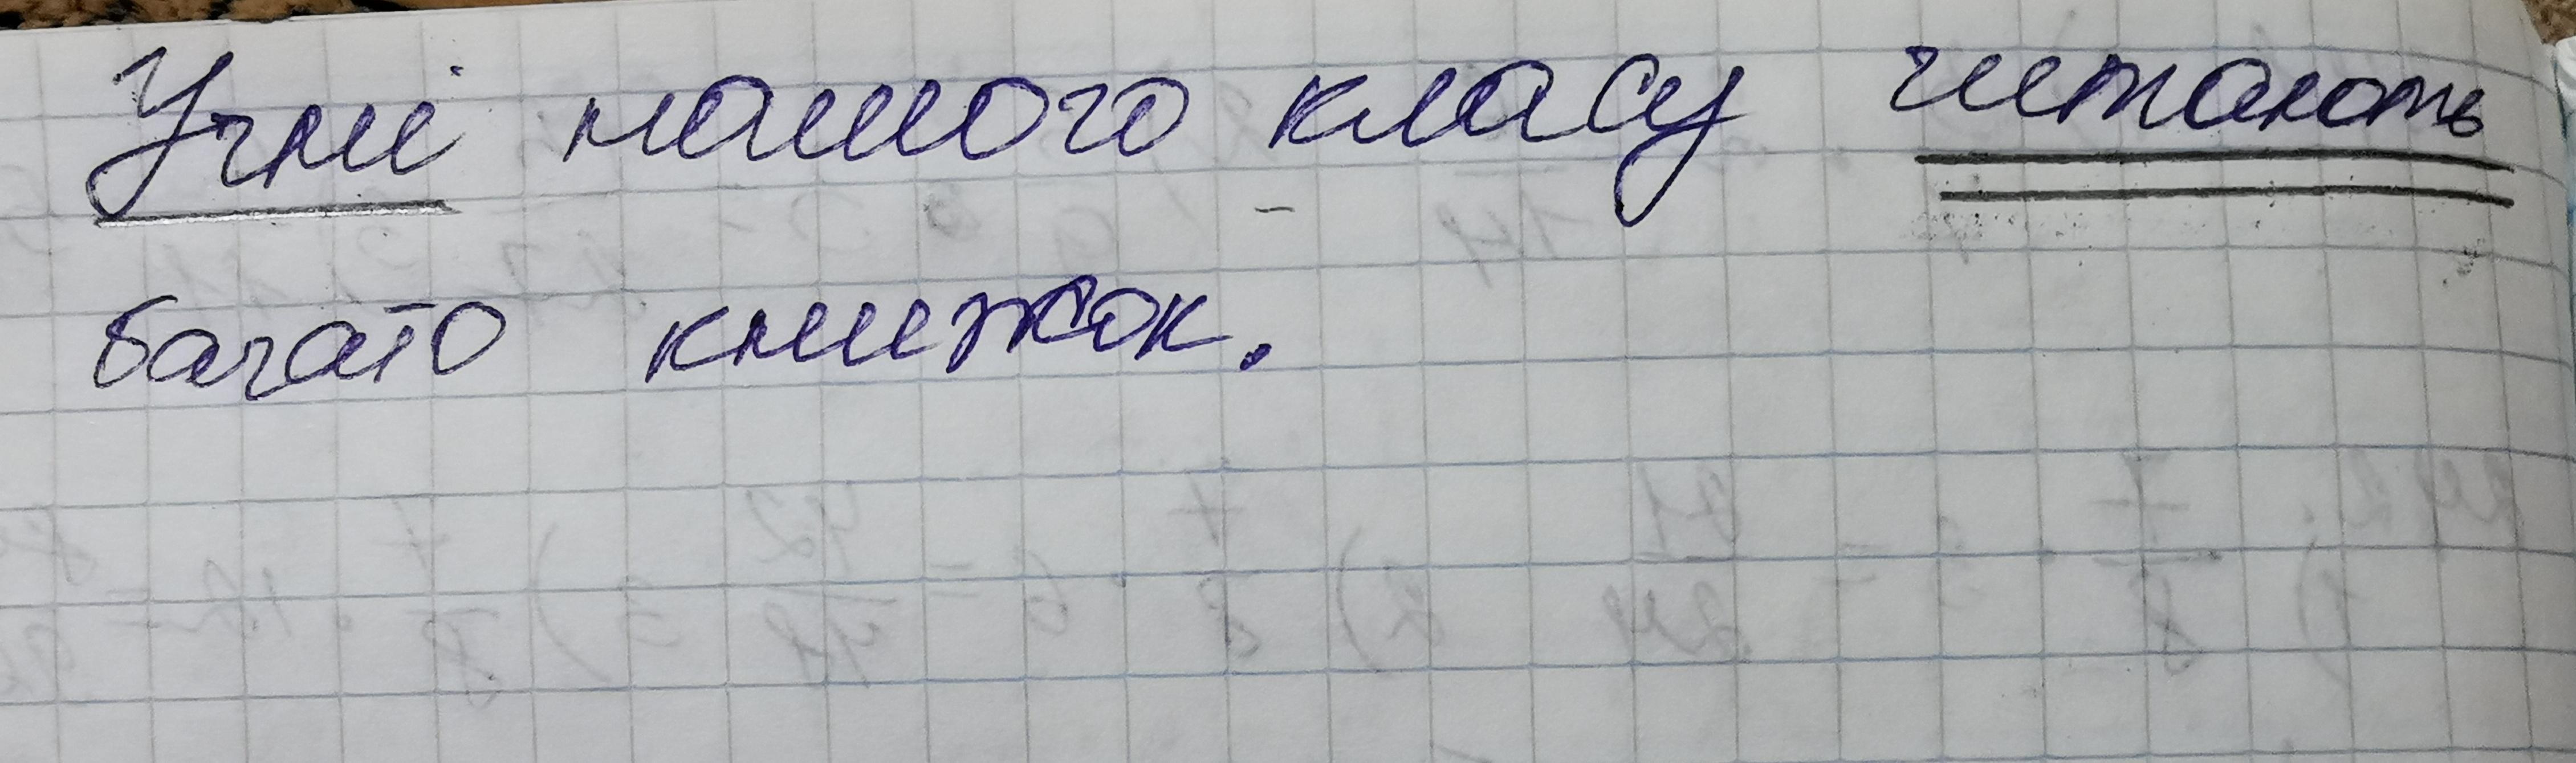 Учні нашого класу читають
багато книжок.